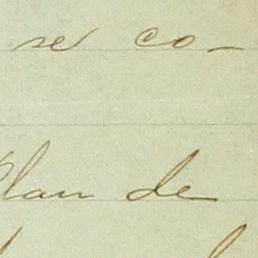 se co-
Plan de